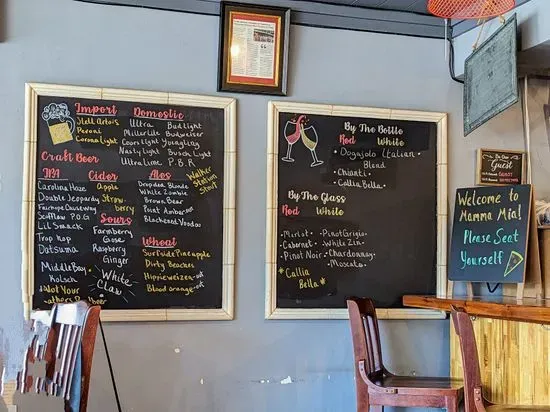 Import
Stell Artois
Peroni
Corona Light
Domestic
Ultra Bud light
Miller Lite Budweiser
Coors light Yuengling
Nasty Light Busch Light
Ultra lime P.B.R
Craft Beer
IPA
Carolina Haze
Double Jeopardy
Fairhope Causeway
Scofflaw P.O.G
Lil Smack
Trop Hop
Datsuma
Middle Bay
Kolsch
Not Your
Cider
Apple
Straw-
berry
Sours
Farmberry
Gose
Raspberry
Ginger
White
Claw
Ales
Dropdea Blonde
White Zombie
Brown Bear
Point Amberous
Blackened Voodoo
Walker
Station
Stout
Wheat
Surfside Pineapple
Dirty Beaches
Hippieweizen-oak
Blood orange-oak
By The Bottle
Red White
Dogajolo Italian
Blend
Chianti
Callia Bella
By The Glass
Red White
Merlot
Cabernet
Pinot Noir
*Callia
Bella*
Pinot Grigio
White Zin
Chardonnay
Moscato
Guest
Welcome to
Mamma Mia!
Please Seat
Yourself